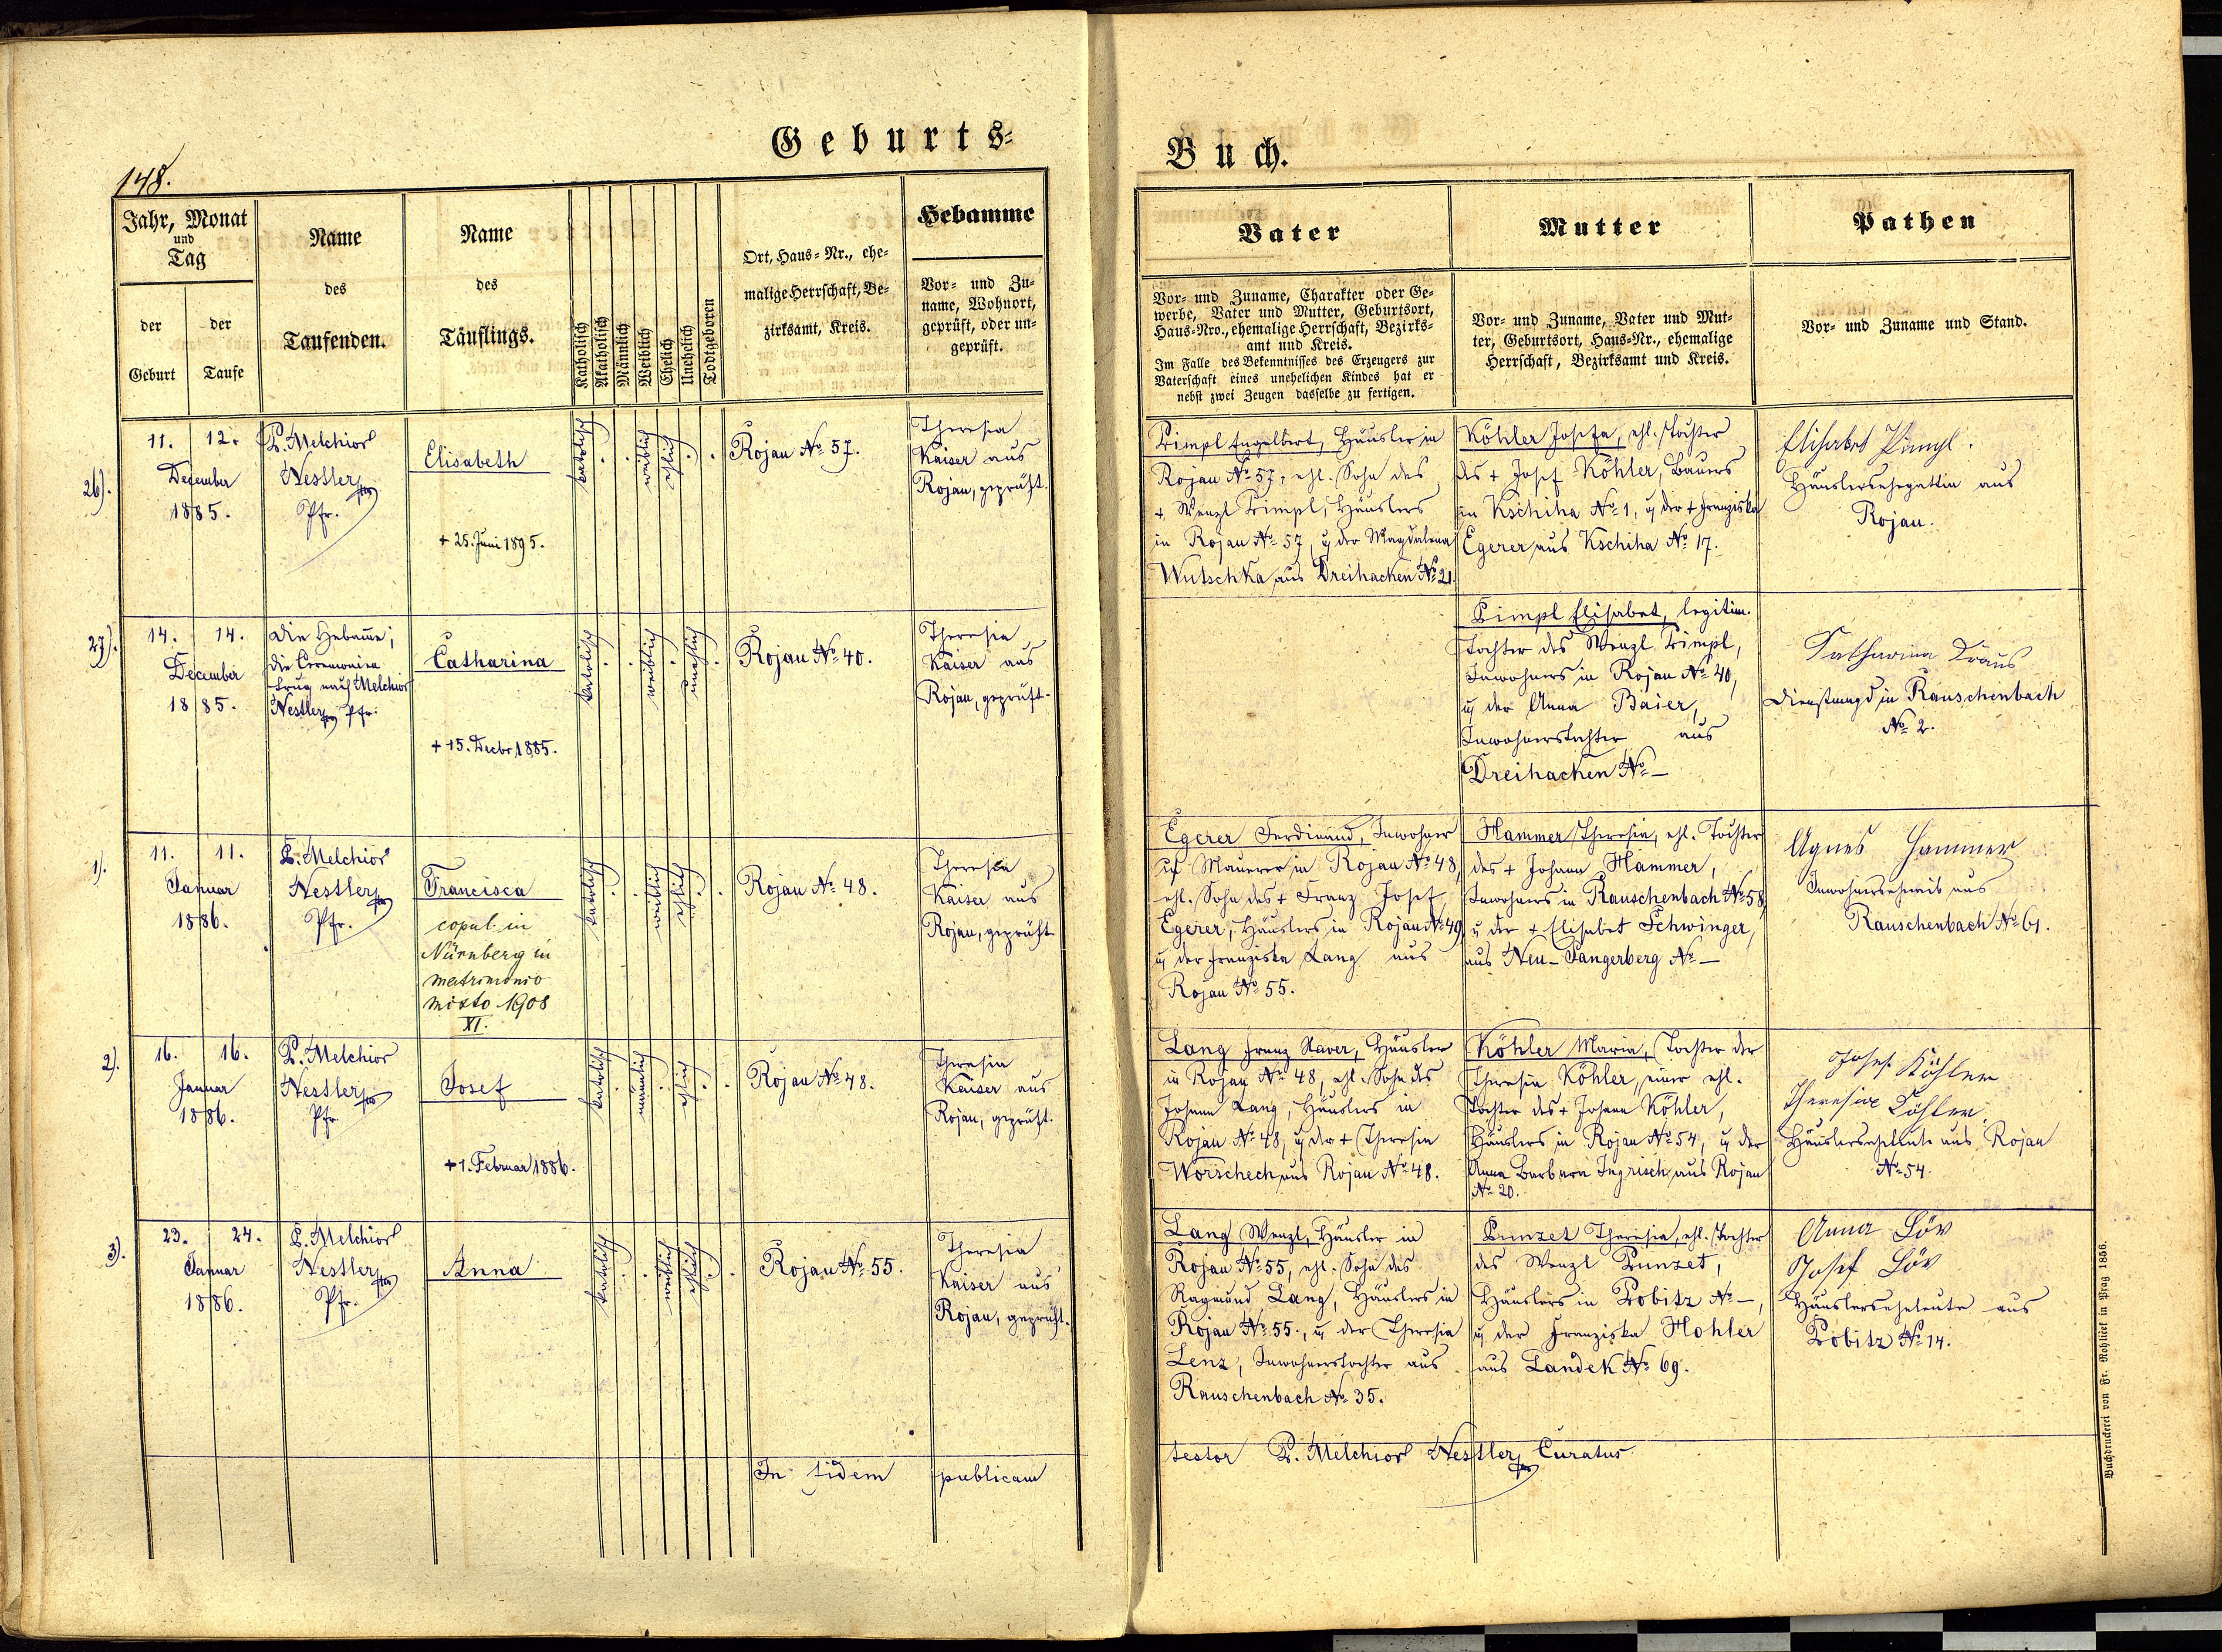 Geburts-
Buch.
148.
Jahr, Monat
und
Tag
der
Geburt
der
Taufe
Name
des
Taufenden.
Name
des
Täuflings.
Katholisch
Akatholisch
Männlich
Weiblich
Ehelich
Unehelich
Todtgeboren
Ort, Haus-Nr., ehe-
malige Herrschaft, Be-
zirksamt, Kreis.
Hebamme
Vor- und Zu-
name, Wohnort,
geprüft, oder un-
geprüft.
Vater
Vor- und Zuname, Charakter oder Ge-
werbe, Vater und Mutter, Geburtsort,
Haus-Nro., ehemalige Herrschaft, Bezirks-
amt und Kreis.
Im Falle des Bekenntnisses des Erzeugers zur
Vaterschaft eines unehelichen Kindes hat er
nebst zwei Zeugen dasselbe zu fertigen.
Mutter
Vor- und Zuname, Vater und Mut-
ter, Geburtsort, Haus-Nr., ehemalige
Herrschaft, Bezirksamt und Kreis.
Pathen
Vor- und Zuname und Stand.
26).
11. 12.
December
1885.
P. Melchior
Nestler
Pfr.
Elisabeth
+ 25. Juni 1895.
katolisch
weiblich
ehlich
Rojau No 57.
Theresia
Kaiser aus
Rojau, geprüft.
Pimpl Engelbert, Häusler in
Rojau No 57, ehl. Sohn des
+ Wenzl Pimpl, Häuslers
in Rojau No 57, u der Magdalena
Wutschka aus Dreihacken No 21.
Köhler Josefa, ehl. Tochter
des + Josef Köhler, Bauers
in Kschiha No 1, u der + Franziska
Egerer aus Kschiha No 17.
Elisabet Pimpl.
Häuslersehegattin aus
Rojau.
27).
14. 14.
December
1885.
Die Hebamme;
die Ceremonien
trug nach Melchior
Nestler Pfr.
Catharina
+ 15. Decbr 1885.
katolisch
weiblich
unehlich
Rojau No 40.
Theresia
Kaiser aus
Rojau, geprüft.
Pimpl Elisabet, legitim.
Tochter des Wenzl Pimpl,
Inwohners in Rojau No 40,
u der Anna Baier,
Inwohnerstochter aus
Dreihacken No —
Katharina Kraus
Dienstmagd in Rauschenbach
No 2.
1).
11. 11.
Januar
1886.
P. Melchior
Nestler
Pfr.
Francisca
copul. in
Nürnberg in
matrimonio
mixto 1908
XI.
katolisch
weiblich
ehlich
Rojau No 48.
Theresia
Kaiser aus
Rojau, geprüft
Egerer Ferdinand, Inwohner
u Maurer in Rojau No 48,
ehl. Sohn des + Franz Josef
Egerer, Häuslers in Rojau No 49,
u der Franziska Lang aus
Rojau No 55.
Hammer Theresia, ehl. Tochter
des + Johann Hammer,
Inwohners in Rauschenbach No 58,
u der + Elisabet Schwinger,
aus Neu-Sangerberg No —
Agnes Hammer
Inwohnerseheweib aus
Rauschenbach No 61.
2).
16. 16.
Januar
1886.
P. Melchior
Nestler
Pfr.
Josef
+ 1. Februar 1886.
katolisch
männlich
ehlich
Rojau No 48.
Theresia
Kaiser aus
Rojau, geprüft.
Lang Franz Xaver, Häusler
in Rojau No 48, ehl. Sohn des
Johann Lang, Häuslers in
Rojau No 48, u der + Theresia
Worschech aus Rojau No 48.
Köhler Maria, Tochter der
Theresia Köhler, einer ehl.
Tochter des + Johann Köhler,
Häuslers in Rojau No 54, u der
Anna Barbara Ingrisch aus Rojau
No 20.
Josef Köhler
Theresia Köhler,
Häuslerseheleute aus Rojau
No 54.
3).
23. 24.
Januar
1886.
P. Melchior
Nestler
Pfr.
Anna
katolisch
weiblich
ehlich
Rojau No 55.
Theresia
Kaiser aus
Rojau, geprüft.
Lang Wenzl, Häusler in
Rojau No 55, ehl. Sohn des
Raymund Lang, Häuslers in
Rojau No 55., u der Theresia
Lenz, Inwohnerstochter aus
Rauschenbach No 35.
Punzet Theresia, ehl. Tochter
des Wenzl Punzet,
Häuslers in Pobitz No —,
u der Franziska Hohler
aus Landek No 69.
Anna Löv
Josef Löv
Häuslerseheleute aus
Pobitz No 14.
In fidem publicam
testor P. Melchior Nestler Curatus
Buchdruckerei von Fr. Rohliček in Prag 1856.